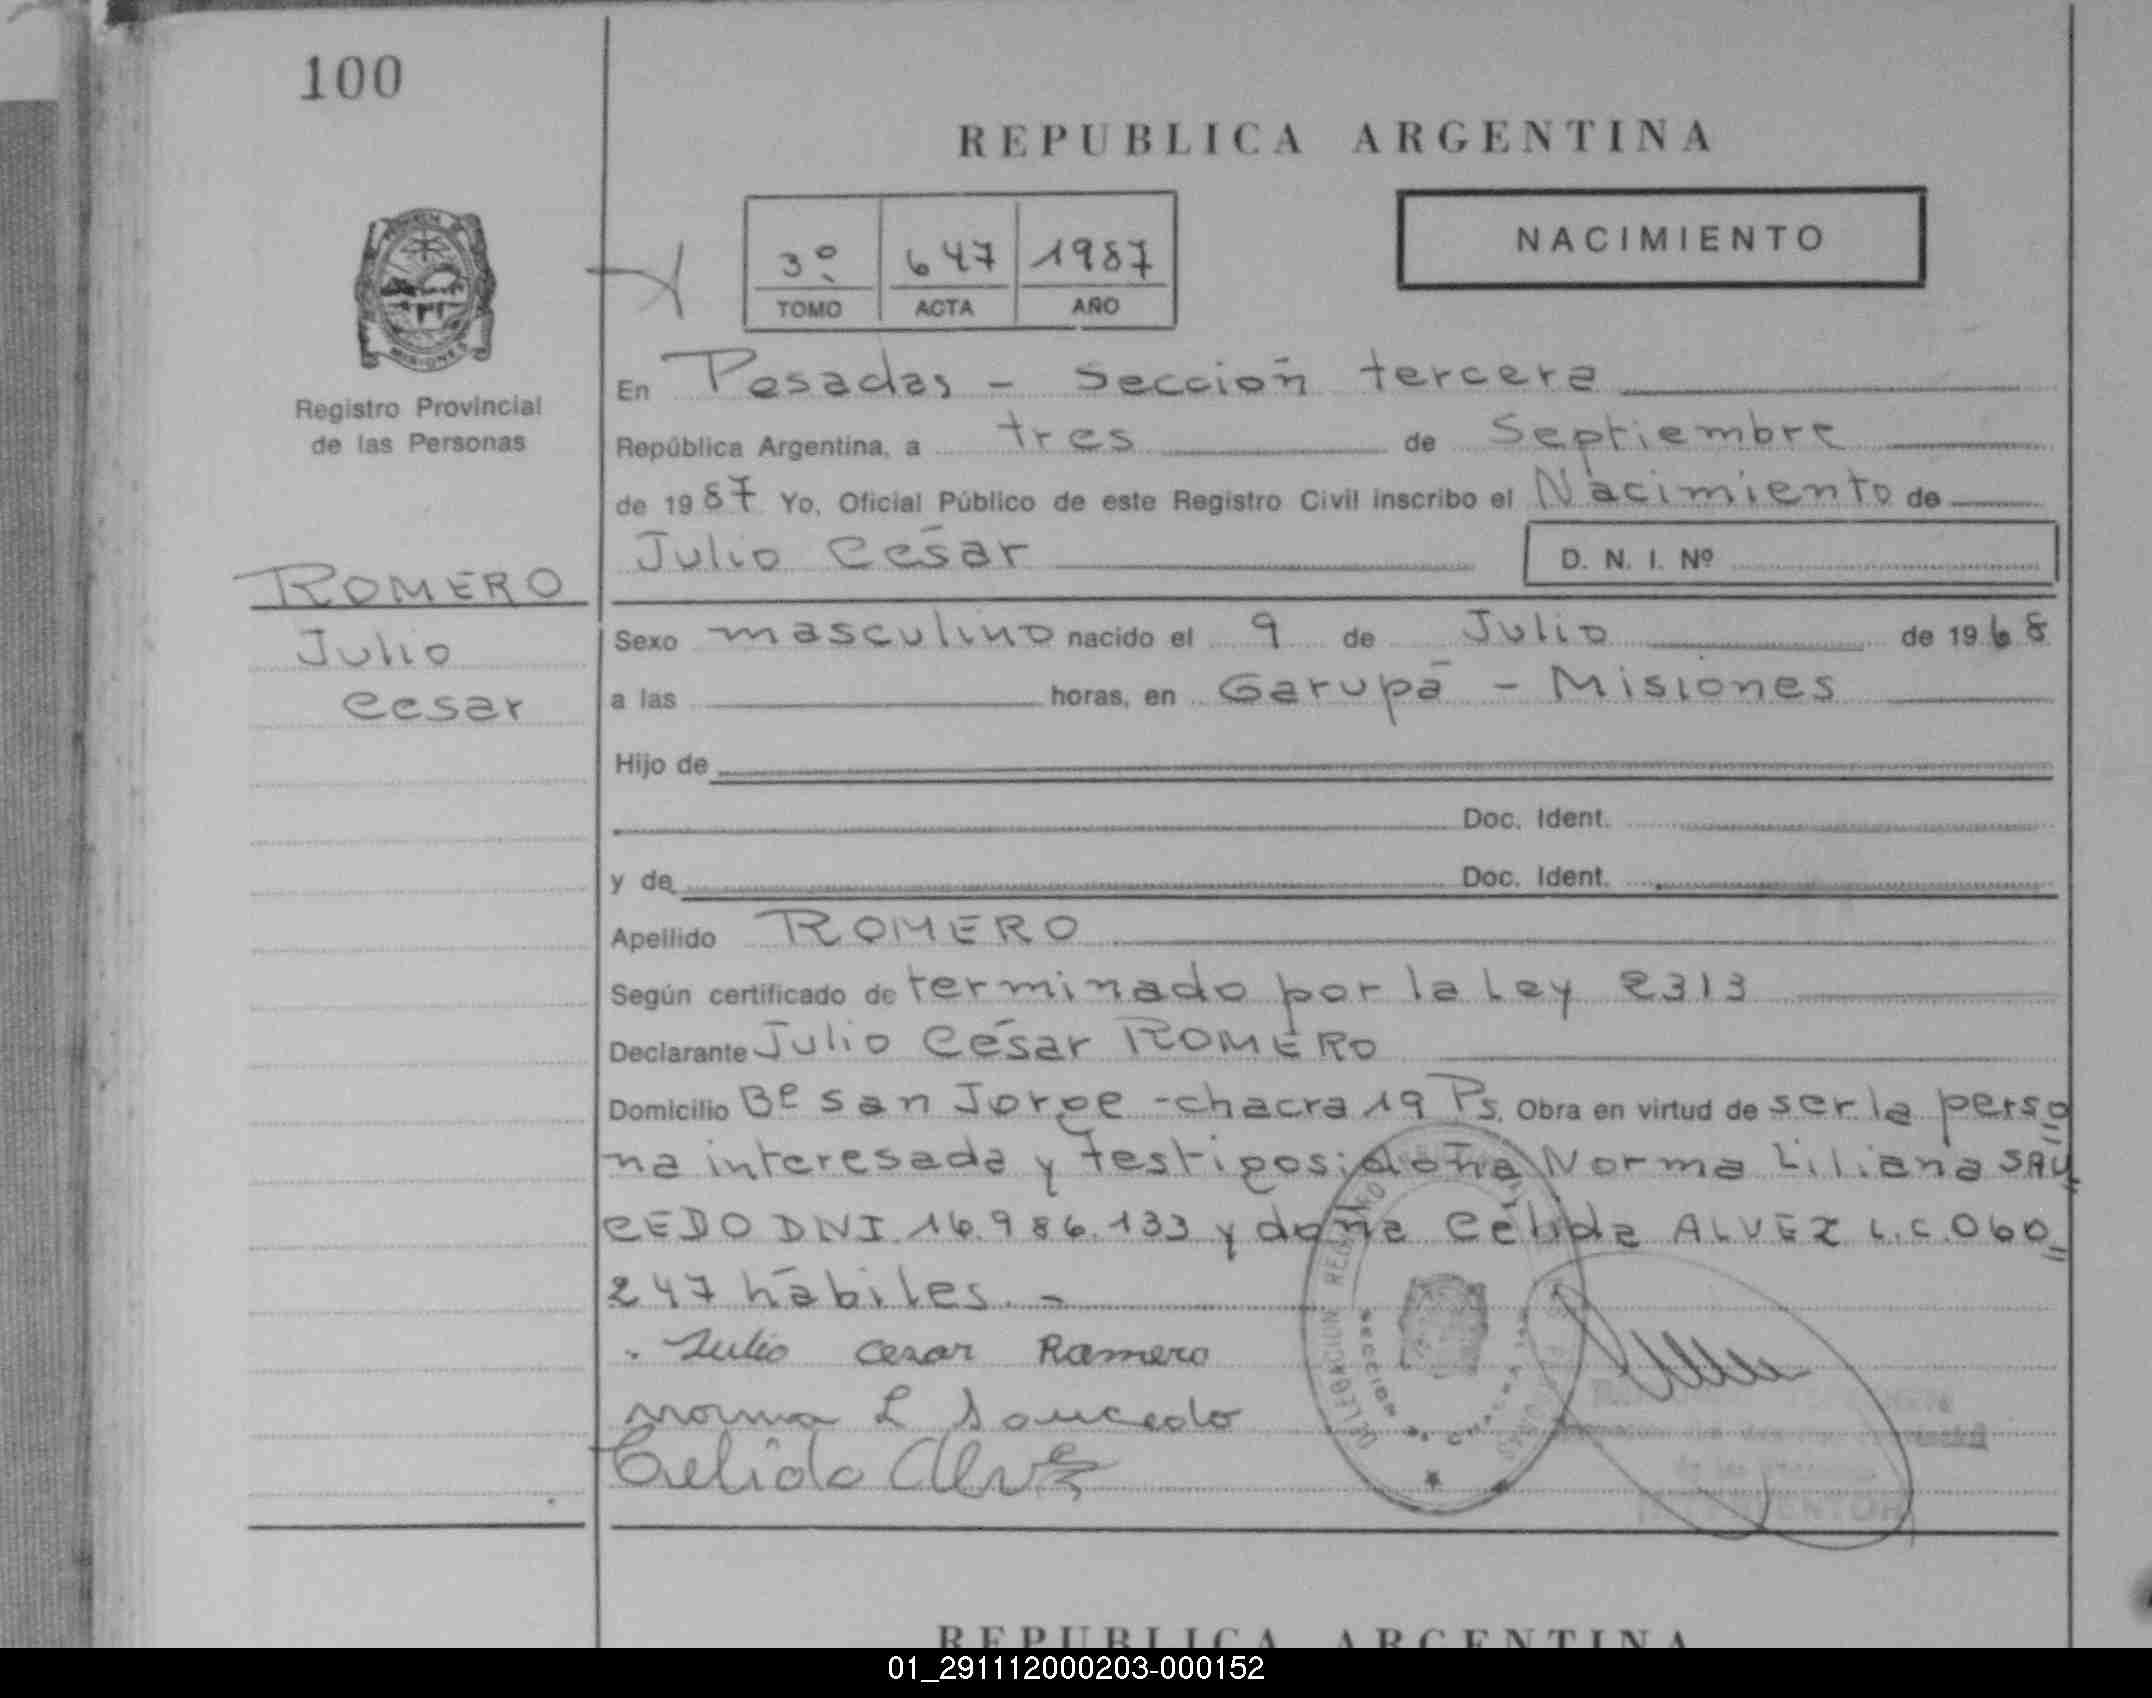 100
REPUBLICA ARGENTINA
NACIMIENTO
3º 647 1987
TOMO ACTA AÑO
MISIONES
Registro Provincial
de las Personas
En Posadas - Sección tercera
República Argentina, a tres de Septiembre
de 1987 Yo, Oficial Público de este Registro Civil inscribo el Nacimiento de
Julio César
D. N. I. Nº
ROMERO
Julio
Cesar
Sexo masculino nacido el 9 de Julio de 1968
a las horas, en Garupá - Misiones
Hijo de
Doc. Ident.
y de Doc. Ident.
Apellido ROMERO
Según certificado de terminado por la Ley 2313
Declarante Julio César ROMERO
Domicilio Bº San Jorge - chacra 19 Ps. Obra en virtud de ser la perso
na interesada y testigos: doña Norma Liliana SAU
CEDO DNI 16.986.133 y doña Célida ALVEZ L.C. 060
247 hábiles. -
Julio Cesar Romero
Norma L Saucedo
Celida Alvez
DELEGACION
REPUBLICA ARGENTINA
01_291112000203-000152